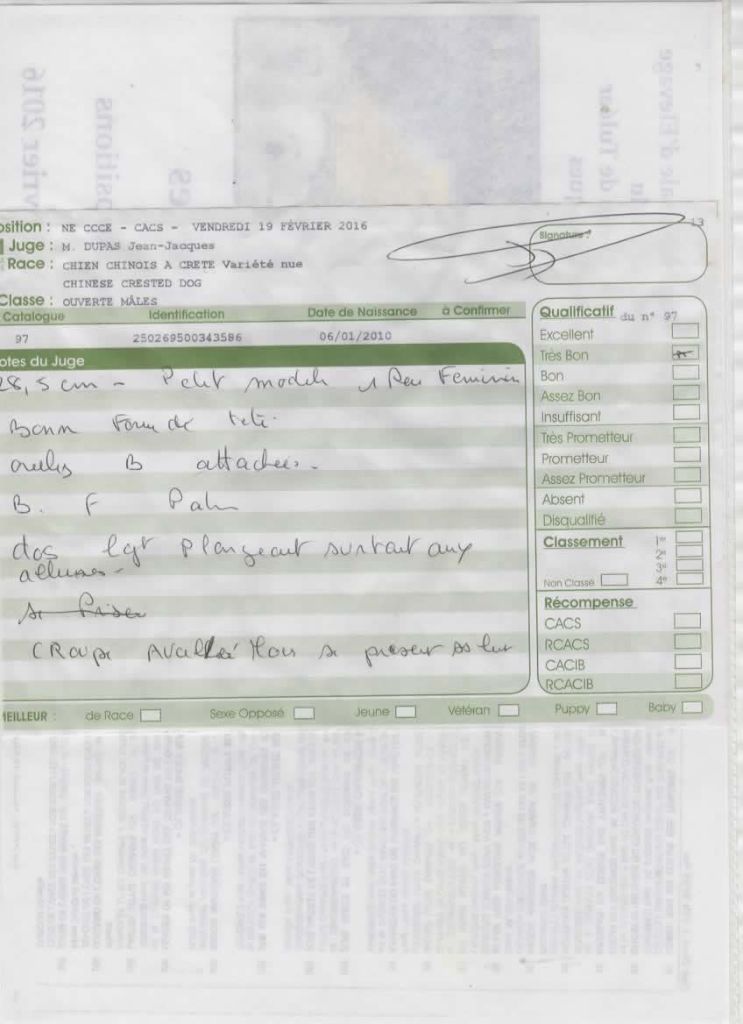 osition : NE CCCE - CACS - VENDREDI 19 FÉVRIER 2016
13
Juge : M. DUPAS Jean-Jacques
Signature :
Race : CHIEN CHINOIS A CRETE Variété nue
CHINESE CRESTED DOG
Classe : OUVERTE MÂLES
Catalogue Identification Date de Naissance à Confirmer
97 250269500343586 06/01/2010
otes du Juge
28,5 cm - Petit model 1 Peu Feminin
Bonn Form de tete.
B attachees.
B. F
dos lgt Plongeant surtout aux
allures -
se
CROupe AVallée Mais se
Qualificatif du n° 97
Excellent
Très Bon
Bon
Assez Bon
Insuffisant
Très Prometteur
Prometteur
Assez Prometteur
Absent
Disqualifié
Classement 1°
2°
3°
Non Classé 4°
Récompense
CACS
RCACS
CACIB
RCACIB
MEILLEUR : de Race Sexe Opposé Jeune Vétéran Puppy Baby